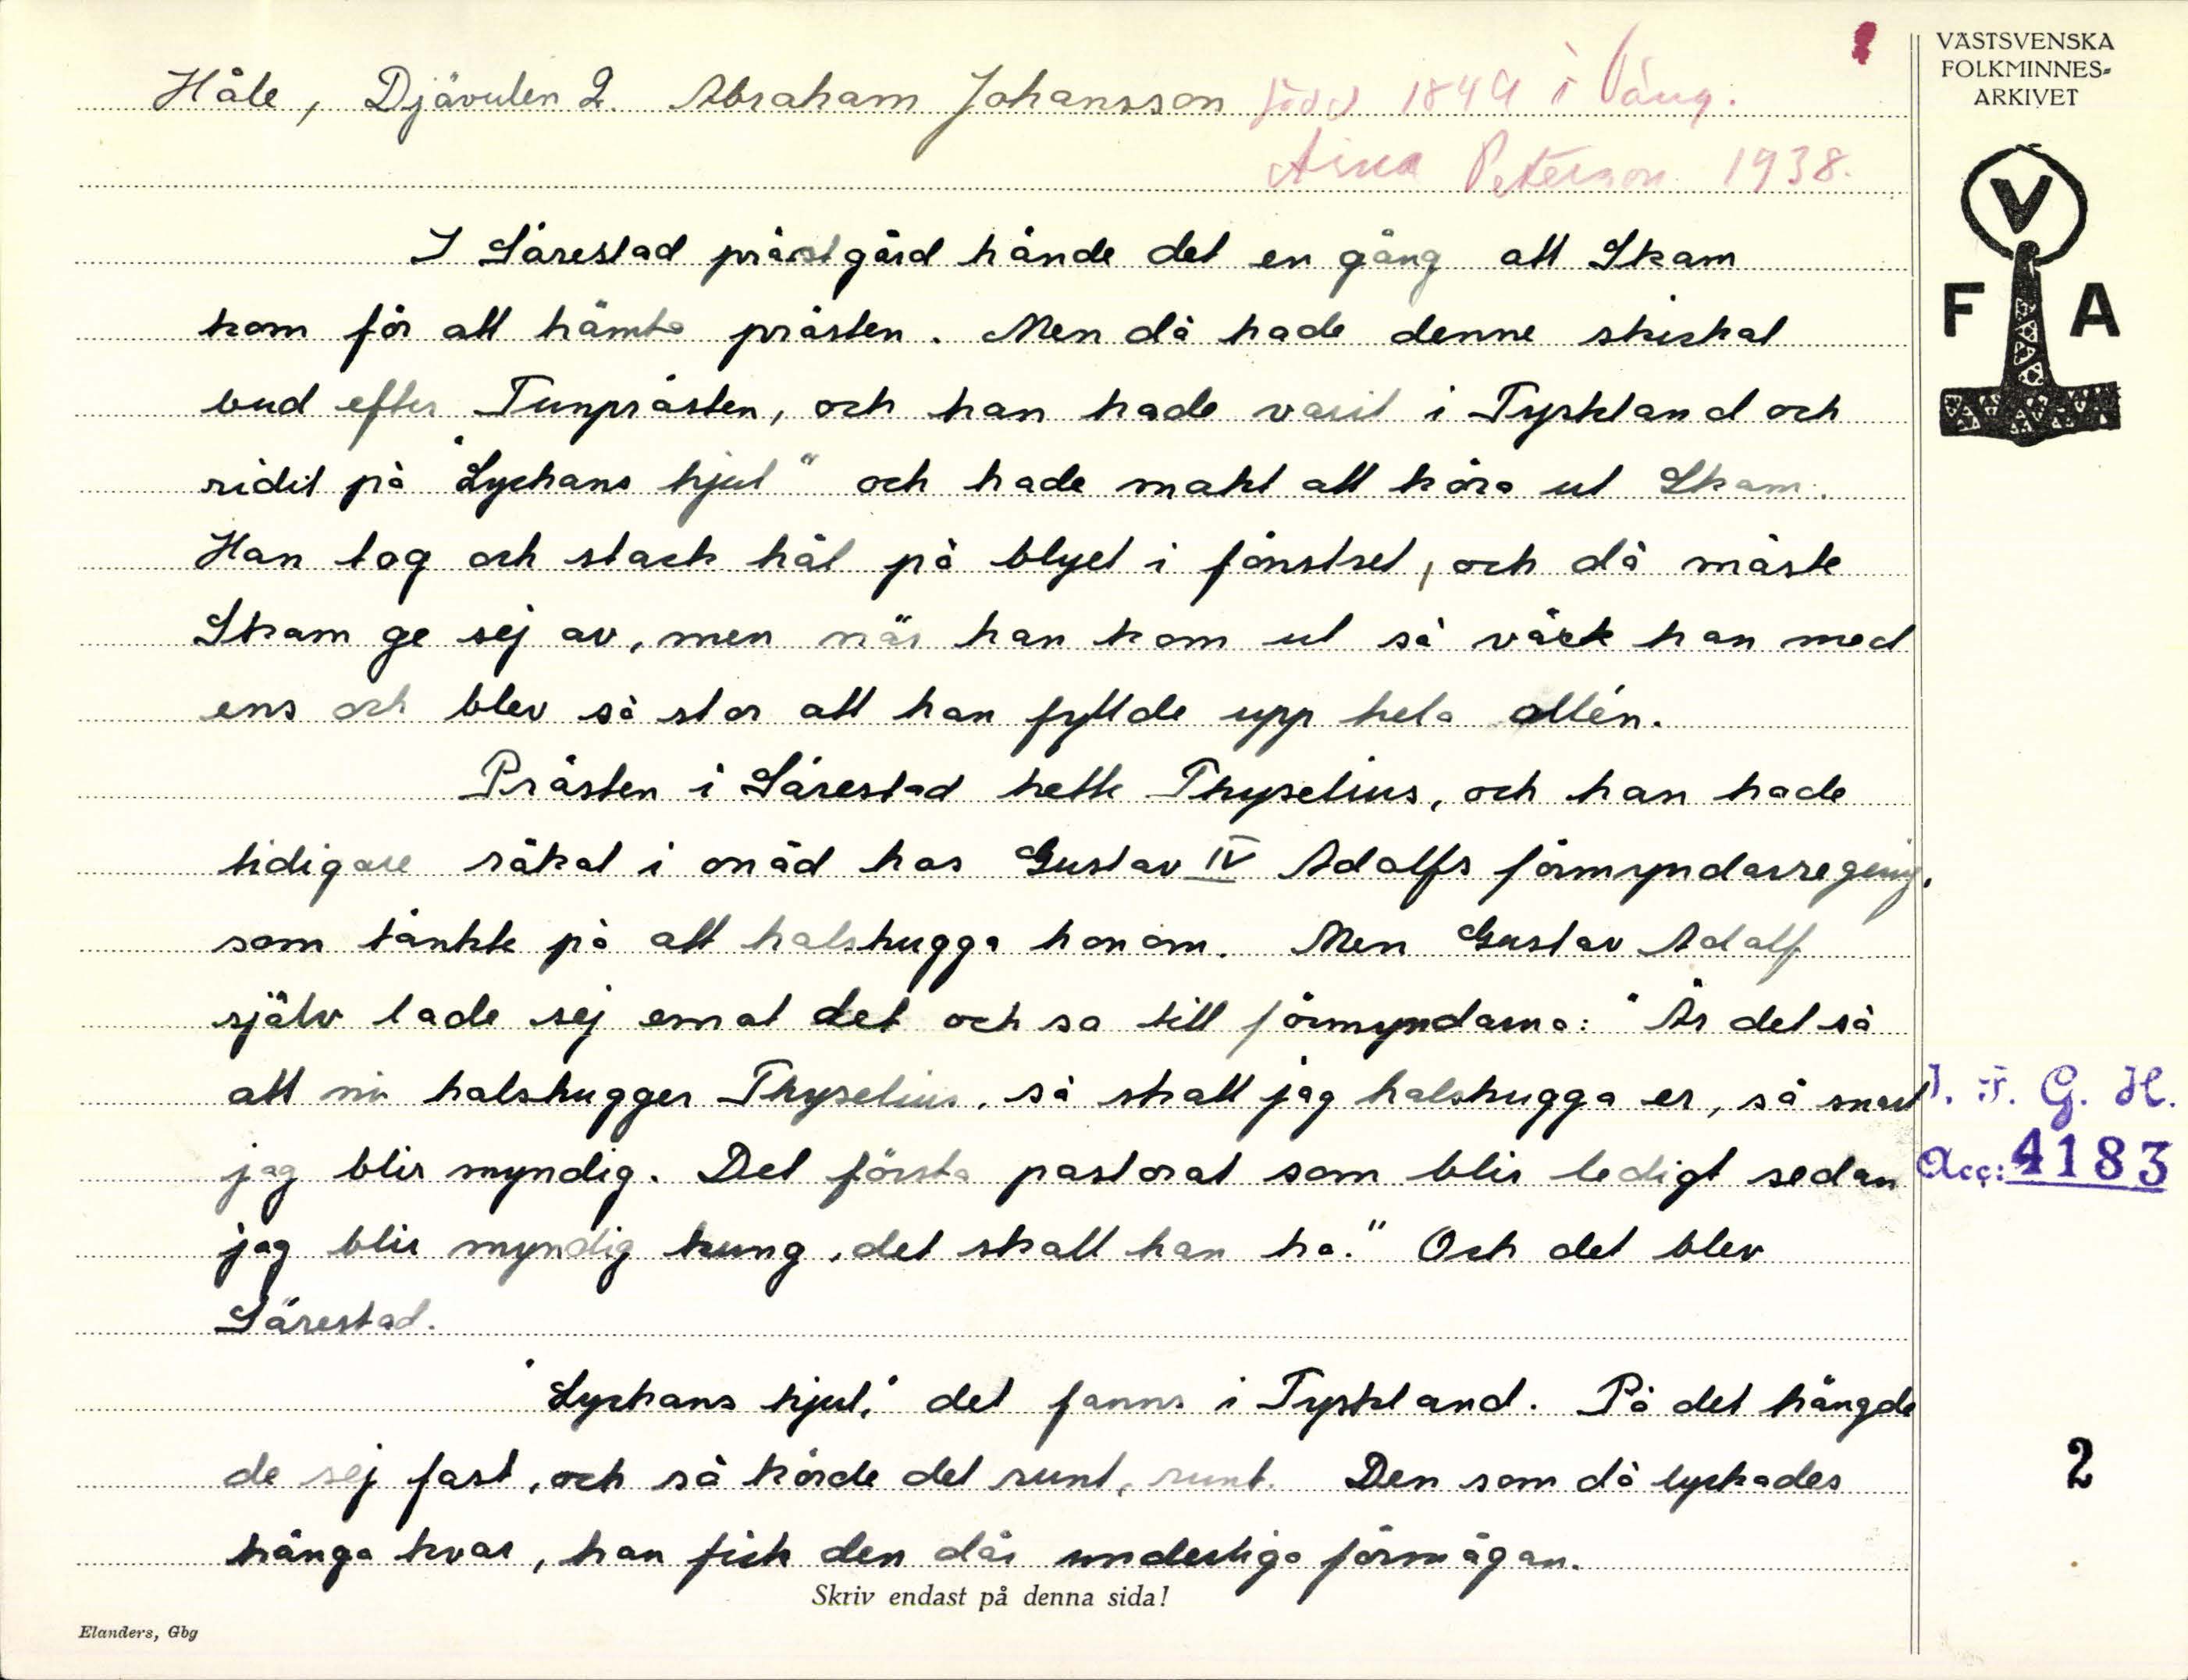 Håle, Djävulen 2. Abraham Johansson född 1849 i Vång.
Aina Peterson 1938.
I Särestad prästgård hände det en gång att Skam
kom för att hämta prästen. Men då hade denne skickat
bud efter Tunprästen, och han hade varit i Tyskland och
ridit på "Lyckans hjul" och hade makt att köra ut Skam.
Han tog och stack hål på blyet i fönstret, och då måste
Skam ge sej av, men när han kom ut så växte han med
ens och blev så stor att han fyllde upp hela allén.
Prästen i Särestad hette Thyselius, och han hade
tidigare råkat i onåd hos Gustav IV Adolfs förmyndarregering,
som tänkte på att halshugga honom. Men Gustav Adolf
själv lade sej emot det och sa till förmyndarna: "Är det så
att ni halshugger Thyselius, så skall jag halshugga er, så snart
jag blir myndig. Det första pastorat som blir ledigt sedan
jag blir myndig kung, det skall han ha." Och det blev
Särestad.
"Lyckans hjul," det fanns i Tyskland. På det hängde
de sej fast, och så körde det runt, runt. Den som då lyckades
hänga kvar, han fick den där underliga förmågan.
Skriv endast på denna sida!
Elanders, Gbg
VÄSTSVENSKA
FOLKMINNES=
ARKIVET
V
F A
I. F. G. H.
Acc: 4183
2